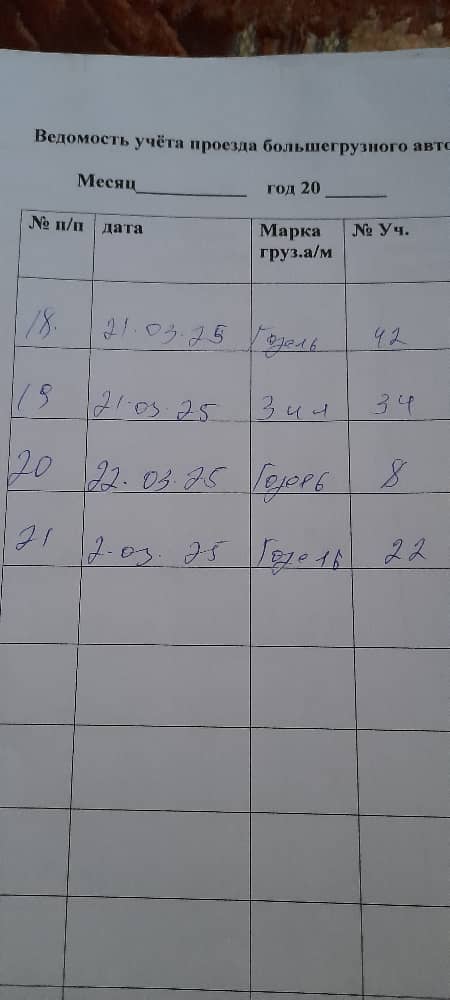 Ведомость учёта проезда большегрузного авто
Месяц___________ год 20 ______
№ п/п дата Марка груз.а/м № Уч.
18. 21.03.25 Газель 42
19 21.03.25 Зил 34
20 22.03.25 Газель 8
21 2.03.25 Газель 22